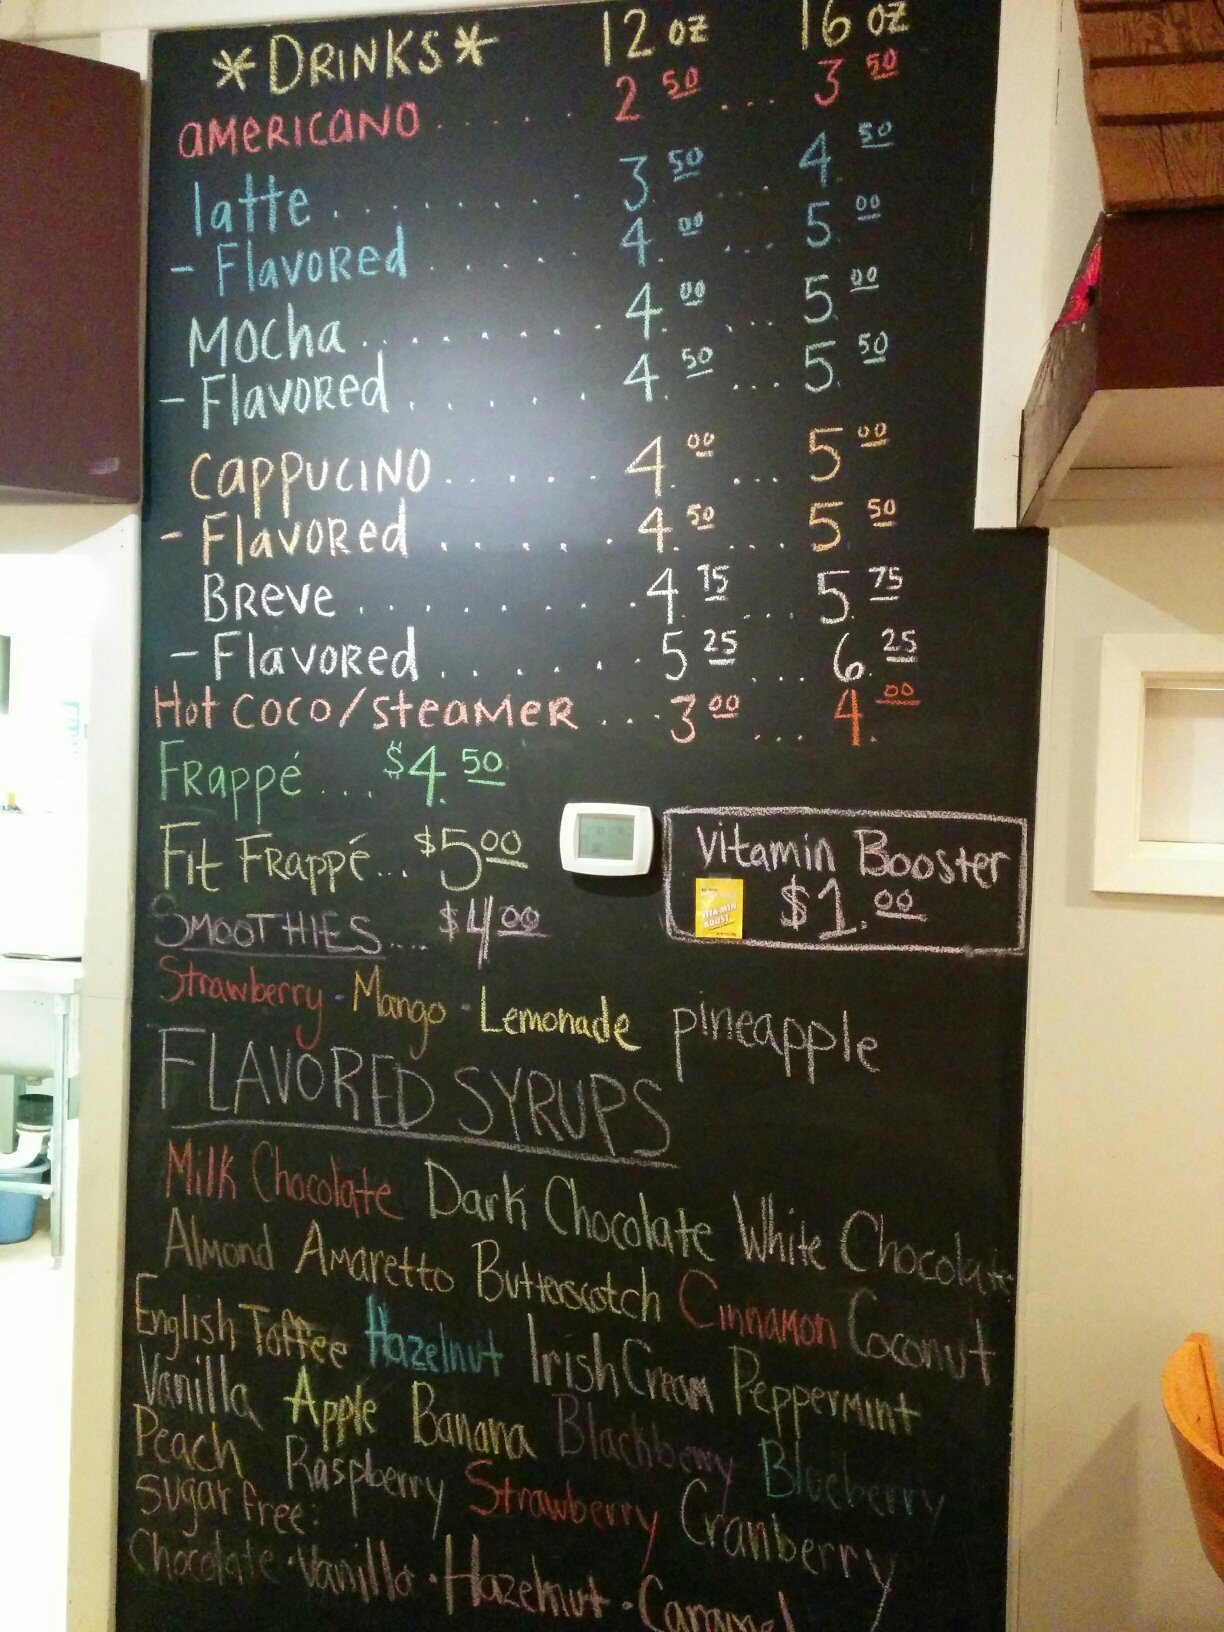 *DRINKS* 12 oz 16 oz
AMERICANO ..... 2 50 ... 3 50
latte ........ 3 50 ... 4 50
- Flavored ..... 4 00 ... 5 00
Mocha ....... 4 00 ... 5 00
- Flavored ...... 4 50 ... 5 50
CAPPUCINO ..... 4 00 ... 5 00
- Flavored ...... 4 50 ... 5 50
Breve ........ 4 75 ... 5 75
- Flavored ...... 5 25 ... 6 25
Hot coco/steamer ... 3 00 ... 4 00
Frappé ... $4.50
Fit Frappé... $5 00
Vitamin Booster
$1.00
VITA-MIN
BOOST
SMOOTHIES.... $4 00
Strawberry - Mango - Lemonade pineapple
FLAVORED SYRUPS
Milk Chocolate Dark Chocolate White Chocolate
Almond Amaretto Butterscotch Cinnamon Coconut
English Toffee Hazelnut Irish Cream Peppermint
Vanilla Apple Banana Blackberry Blueberry
Peach Raspberry Strawberry Cranberry
Sugar free:
Chocolate · Vanilla · Hazelnut · Caramel